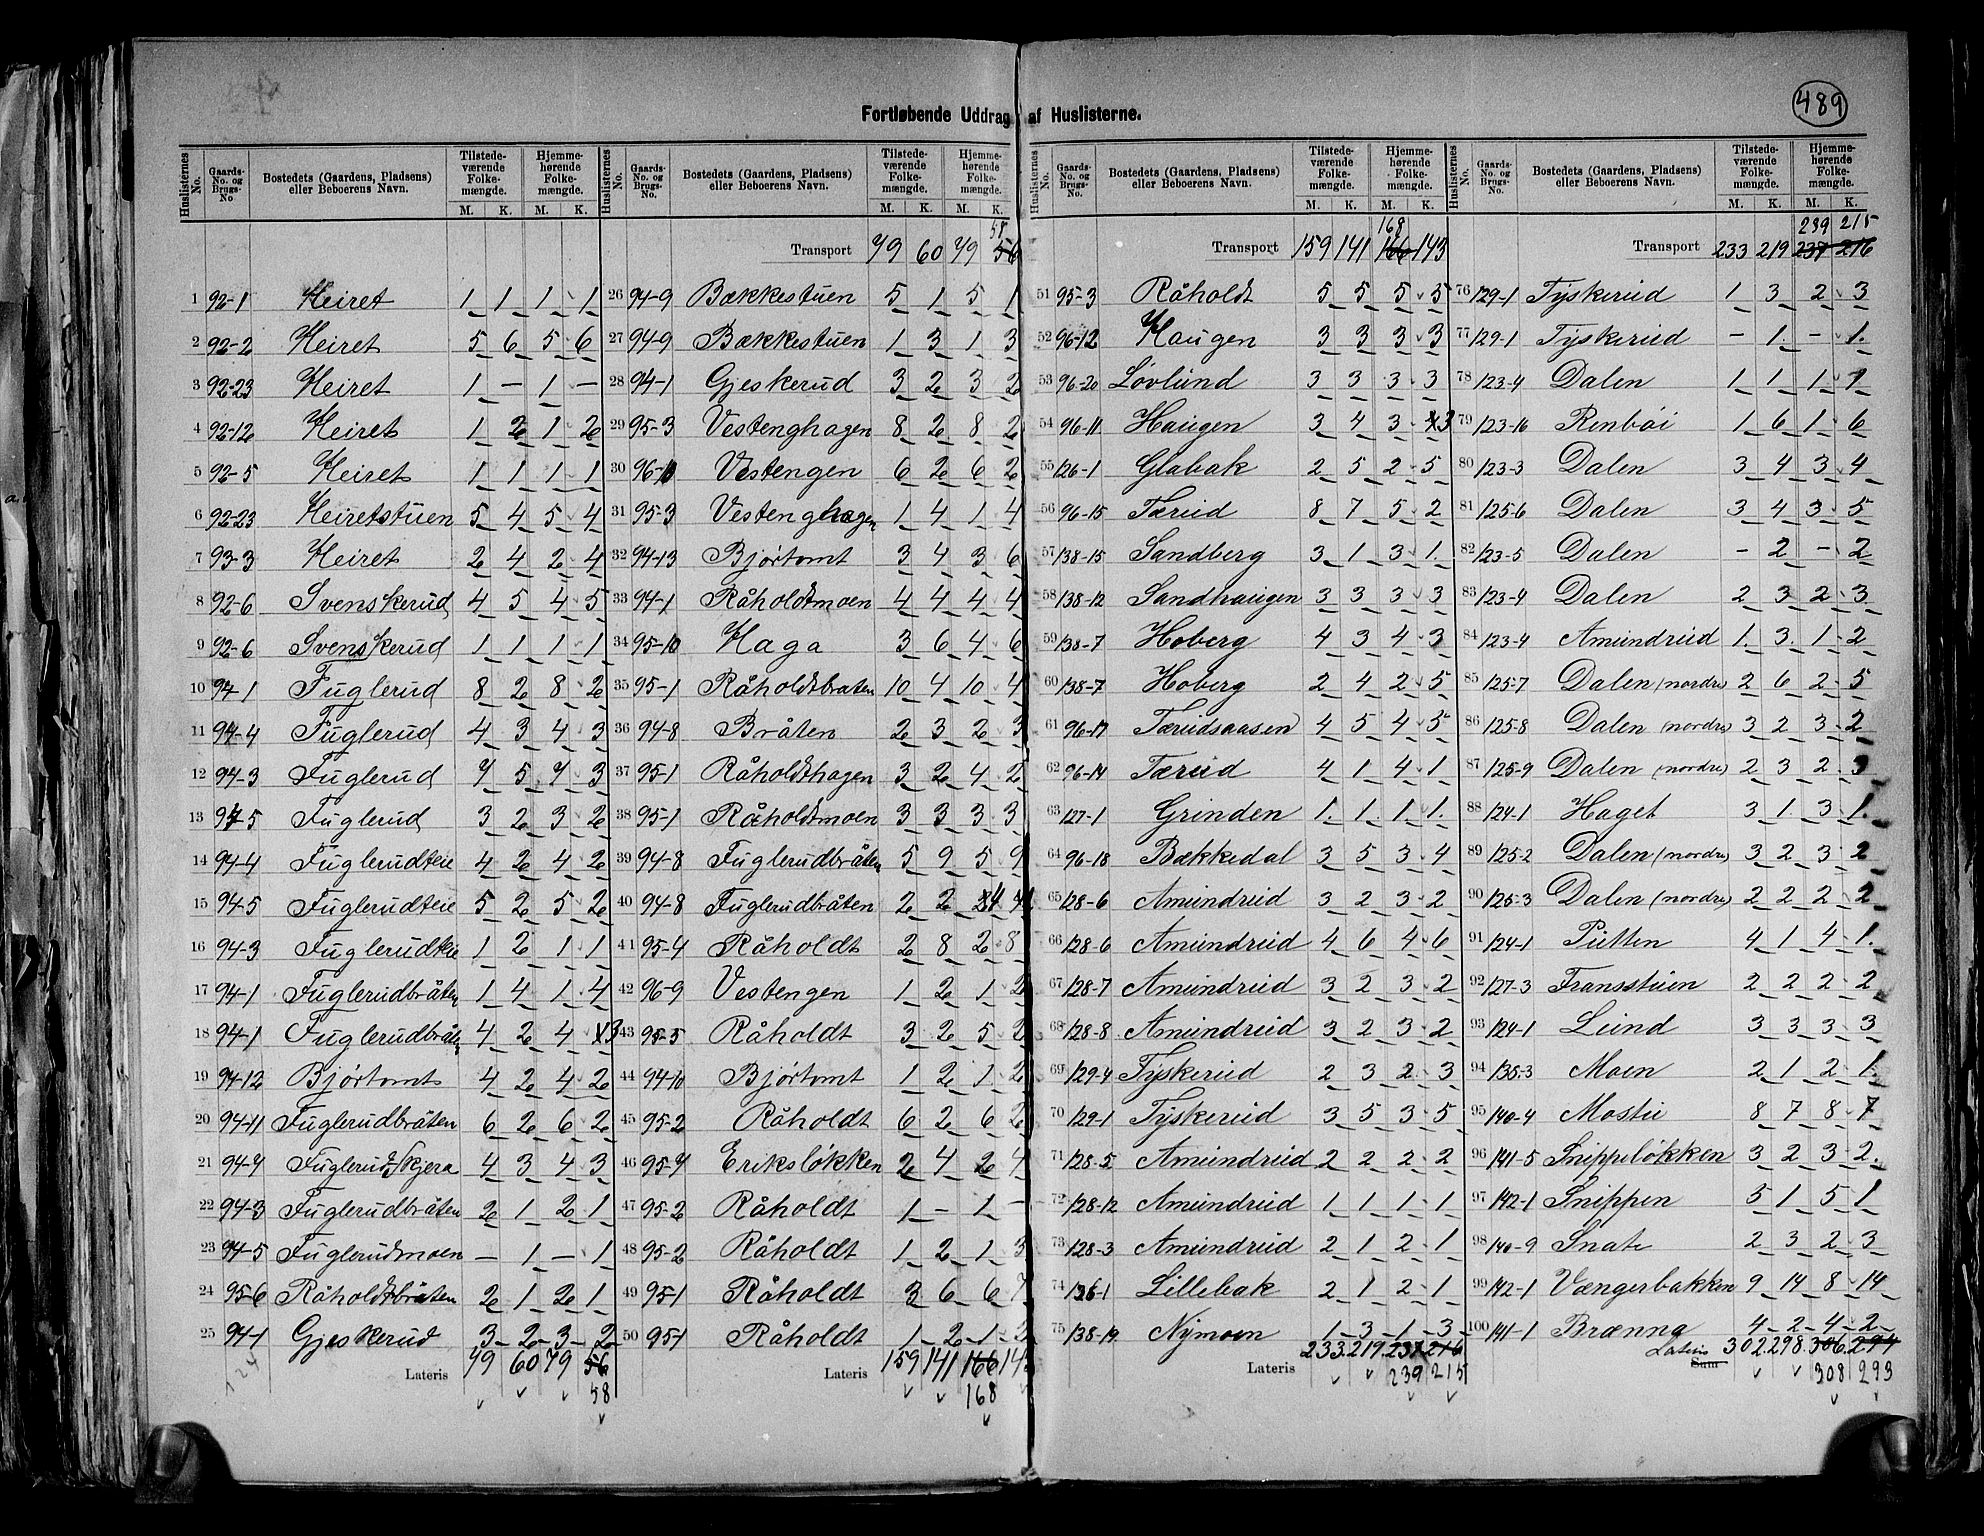 489
Fortløbende Uddrag af Huslisterne.
Huslisternes No. | Gaards-No. og Brugs-No | Bostedets (Gaardens, Pladsens) eller Beboerens Navn. | Tilstedeværende Folkemængde. M. K. | Hjemmehørende Folkemængde. M. K.
1 92-1 Heiret 1 1 1 1
2 92-2 Heiret 5 6 5 6
3 92-23 Heiret 1 – 1 –
4 92-12 Heiret 1 2 1 2
5 92-5 Heiret 1 1 1 1
6 92-23 Heiretstuen 5 4 5 4
7 93-3 Heiret 2 4 2 4
8 92-6 Svenskerud 4 5 4 5
9 92-6 Svenskerud 1 1 1 1
10 94-1 Fuglerud 8 2 8 2
11 94-4 Fuglerud 4 3 4 3
12 94-3 Fuglerud 7 5 7 3
13 94-5 Fuglerud 3 2 3 2
14 94-4 Fuglerudteie 4 2 4 2
15 94-5 Fuglerudteie 5 2 5 2
16 94-3 Fuglerudteie 1 2 1 1
17 94-1 Fuglerudbråten 1 4 1 4
18 94-1 Fuglerudbråten 4 2 4 3
19 94-12 Bjørtomt 4 2 4 2
20 94-11 Fuglerudbråten 6 2 6 2
21 94-4 Fuglerudkjera 4 3 4 3
22 94-3 Fuglerudbråten 2 1 2 1
23 94-5 Fuglerudmoen – 1 – 1
24 95-6 Råholdtbråten 2 1 2 1
25 94-1 Gjeskerud 3 2 3 2
Lateris 79 60 79 56
58
Huslisternes No. | Gaards-No. og Brugs-No. | Bostedets (Gaardens, Pladsens) eller Beboerens Navn. | Tilstedeværende Folkemængde. M. K. | Hjemmehørende Folkemængde. M. K.
58
Transport 79 60 79 56
26 94-9 Bækkestuen 5 1 5 1
27 94-9 Bækkestuen 1 3 1 3
28 94-1 Gjeskerud 3 2 3 2
29 95-3 Vestenghagen 8 2 8 2
30 96-10 Vestengen 6 2 6 2
31 95-3 Vestenghagen 1 4 1 4
32 94-13 Bjørtomt 3 4 3 6
33 94-1 Råholdtmoen 4 4 4 4
34 95-10 Haga 3 6 4 6
35 95-1 Råholdtbraten 10 4 10 4
36 94-8 Bråten 2 3 2 3
37 95-1 Råholdthagen 3 2 4 2
38 95-1 Råholdtmoen 3 3 3 3
39 94-8 Fuglerudbråten 5 9 5 9
40 94-8 Fuglerudbråten 2 2 4
41 95-4 Råholdt 2 8 2 8
42 96-9 Vestengen 1 2 1 2
43 95-5 Råholdt 3 2 5 2
44 94-10 Bjørtomt 1 2 1 2
45 95-2 Råholdt 6 2 6 2
46 95-7 Eriksløkken 2 4 2 4
47 95-2 Råholdt 1 – 1 –
48 95-2 Råholdt 1 2 1 3
49 95-1 Råholdt 3 6 6 7
50 95-1 Råholdt 1 2 1 2
Lateris 159 141 166 14
168
Huslisternes No. | Gaards-No. og Brugs-No. | Bostedets (Gaardens, Pladsens) eller Beboerens Navn. | Tilstedeværende Folkemængde. M. K. | Hjemmehørende Folkemængde. M. K.
168
Transport 159 141 166 143
51 95-3 Råholdt 5 5 5 5
52 96-12 Haugen 3 3 3 3
53 96-20 Løvlund 3 3 3 3
54 96-11 Haugen 3 4 3 3
55 126-1 Glabak 2 5 2 5
56 96-15 Tærud 8 7 5 2
57 138-15 Sandberg 3 1 3 1
58 138-12 Sandhaugen 3 3 3 3
59 138-7 Hoberg 4 3 4 3
60 138-7 Hoberg 2 4 2 5
61 96-17 Tærudsaasen 4 5 4 5
62 96-14 Tærud 4 1 4 1
63 127-1 Grinden 1 1 1 1
64 96-18 Bækkedal 3 5 3 4
65 128-6 Amundrud 3 2 3 2
66 128-6 Amundrud 4 6 4 6
67 128-7 Amundrud 3 2 3 2
68 128-8 Amundrud 3 2 3 2
69 129-4 Tyskerud 2 3 2 3
70 129-1 Tyskerud 3 5 3 5
71 128-5 Amundrud 2 2 2 2
72 128-12 Amundrud 1 1 1 1
73 128-3 Amundrud 2 1 2 1
74 136-1 Lillebak 2 1 2 1
75 138-19 Nymoen 1 3 1 3
Lateris 233 219 237 216
239 215
Huslisternes No. | Gaards-No. og Brugs-No. | Bostedets (Gaardens, Pladsens) eller Beboerens Navn. | Tilstedeværende Folkemængde. M. K. | Hjemmehørende Folkemængde. M. K.
239 215
Transport 233 219 237 216
76 129-1 Tyskerud 1 3 2 3
77 129-1 Tyskerud – 1 – 1
78 123-4 Dalen 1 1 1 1
79 123-16 Renbøi 1 6 1 6
80 123-3 Dalen 3 4 3 4
81 125-6 Dalen 3 4 3 5
82 123-5 Dalen – 2 – 2
83 123-4 Dalen 2 3 2 3
84 123-4 Amundrud 1 3 1 2
85 125-7 Dalen (nordre) 2 6 2 5
86 125-8 Dalen (nordre) 3 2 3 2
87 125-9 Dalen (nordre) 2 3 2 3
88 124-1 Haget 3 1 3 1
89 125-2 Dalen (nordre) 3 2 3 2
90 125-3 Dalen (nordre) 2 2 2 2
91 124-1 Putten 4 1 4 1
92 127-3 Fransstuen 2 2 2 2
93 124-1 Lund 3 3 3 3
94 135-3 Moen 2 1 2 1
95 140-4 Mostu 8 7 8 7
96 141-5 Snippeløkken 3 2 3 2
97 142-1 Snippen 5 1 5 1
98 140-9 Snate 2 3 2 3
99 142-1 Vængerbakken 9 14 8 14
100 141-1 Brænna 4 2 4 2
Lateris 302 298 306 294
Sum 308 293